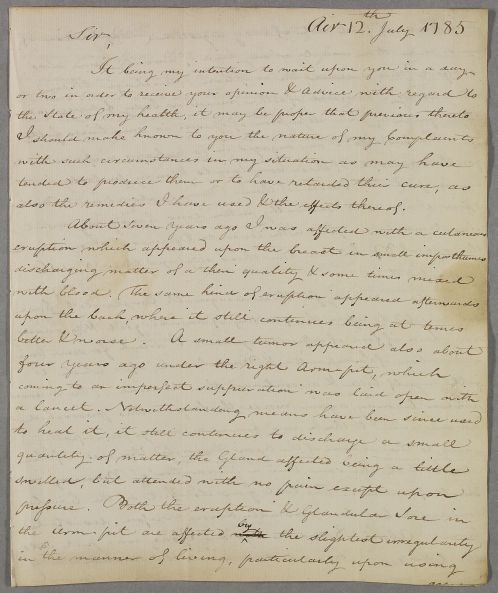 Air 12.th July 1785
Sir,
It being my intention to wait upon you in a day
or two in order to receive your opinion & advice with regard to
the State of my health, it may be proper that previous thereto
I should make known to you the nature of my Complaints
with such circumstances in my situation as may have
tended to produce them or to have retarded their cure, as
also the remedies I have used & the effects thereof.
About Seven Years ago I was affected with a cutaneous
eruption which appeared upon the breast in small imposthumes
discharging matter of a thin quality & some times mixed
with blood. The same kind of eruption appeared afterwards
upon the back, where it still continues being at times
better & worse. A small tumor appeared also about
four years ago under the right Arm-pit, which
coming to an imperfect suppuration was laid open with
a lancet. Notwithstanding means have been since used
to heal it, it still continues to discharge a small
quantity of matter, the Gland affected being a little
swelled, but attended with no pain except upon
pressure. Both the eruption & Glandular Sore in
the Arm-pit are affected with by the slightest irregularity
in the manner of living, particularly upon using